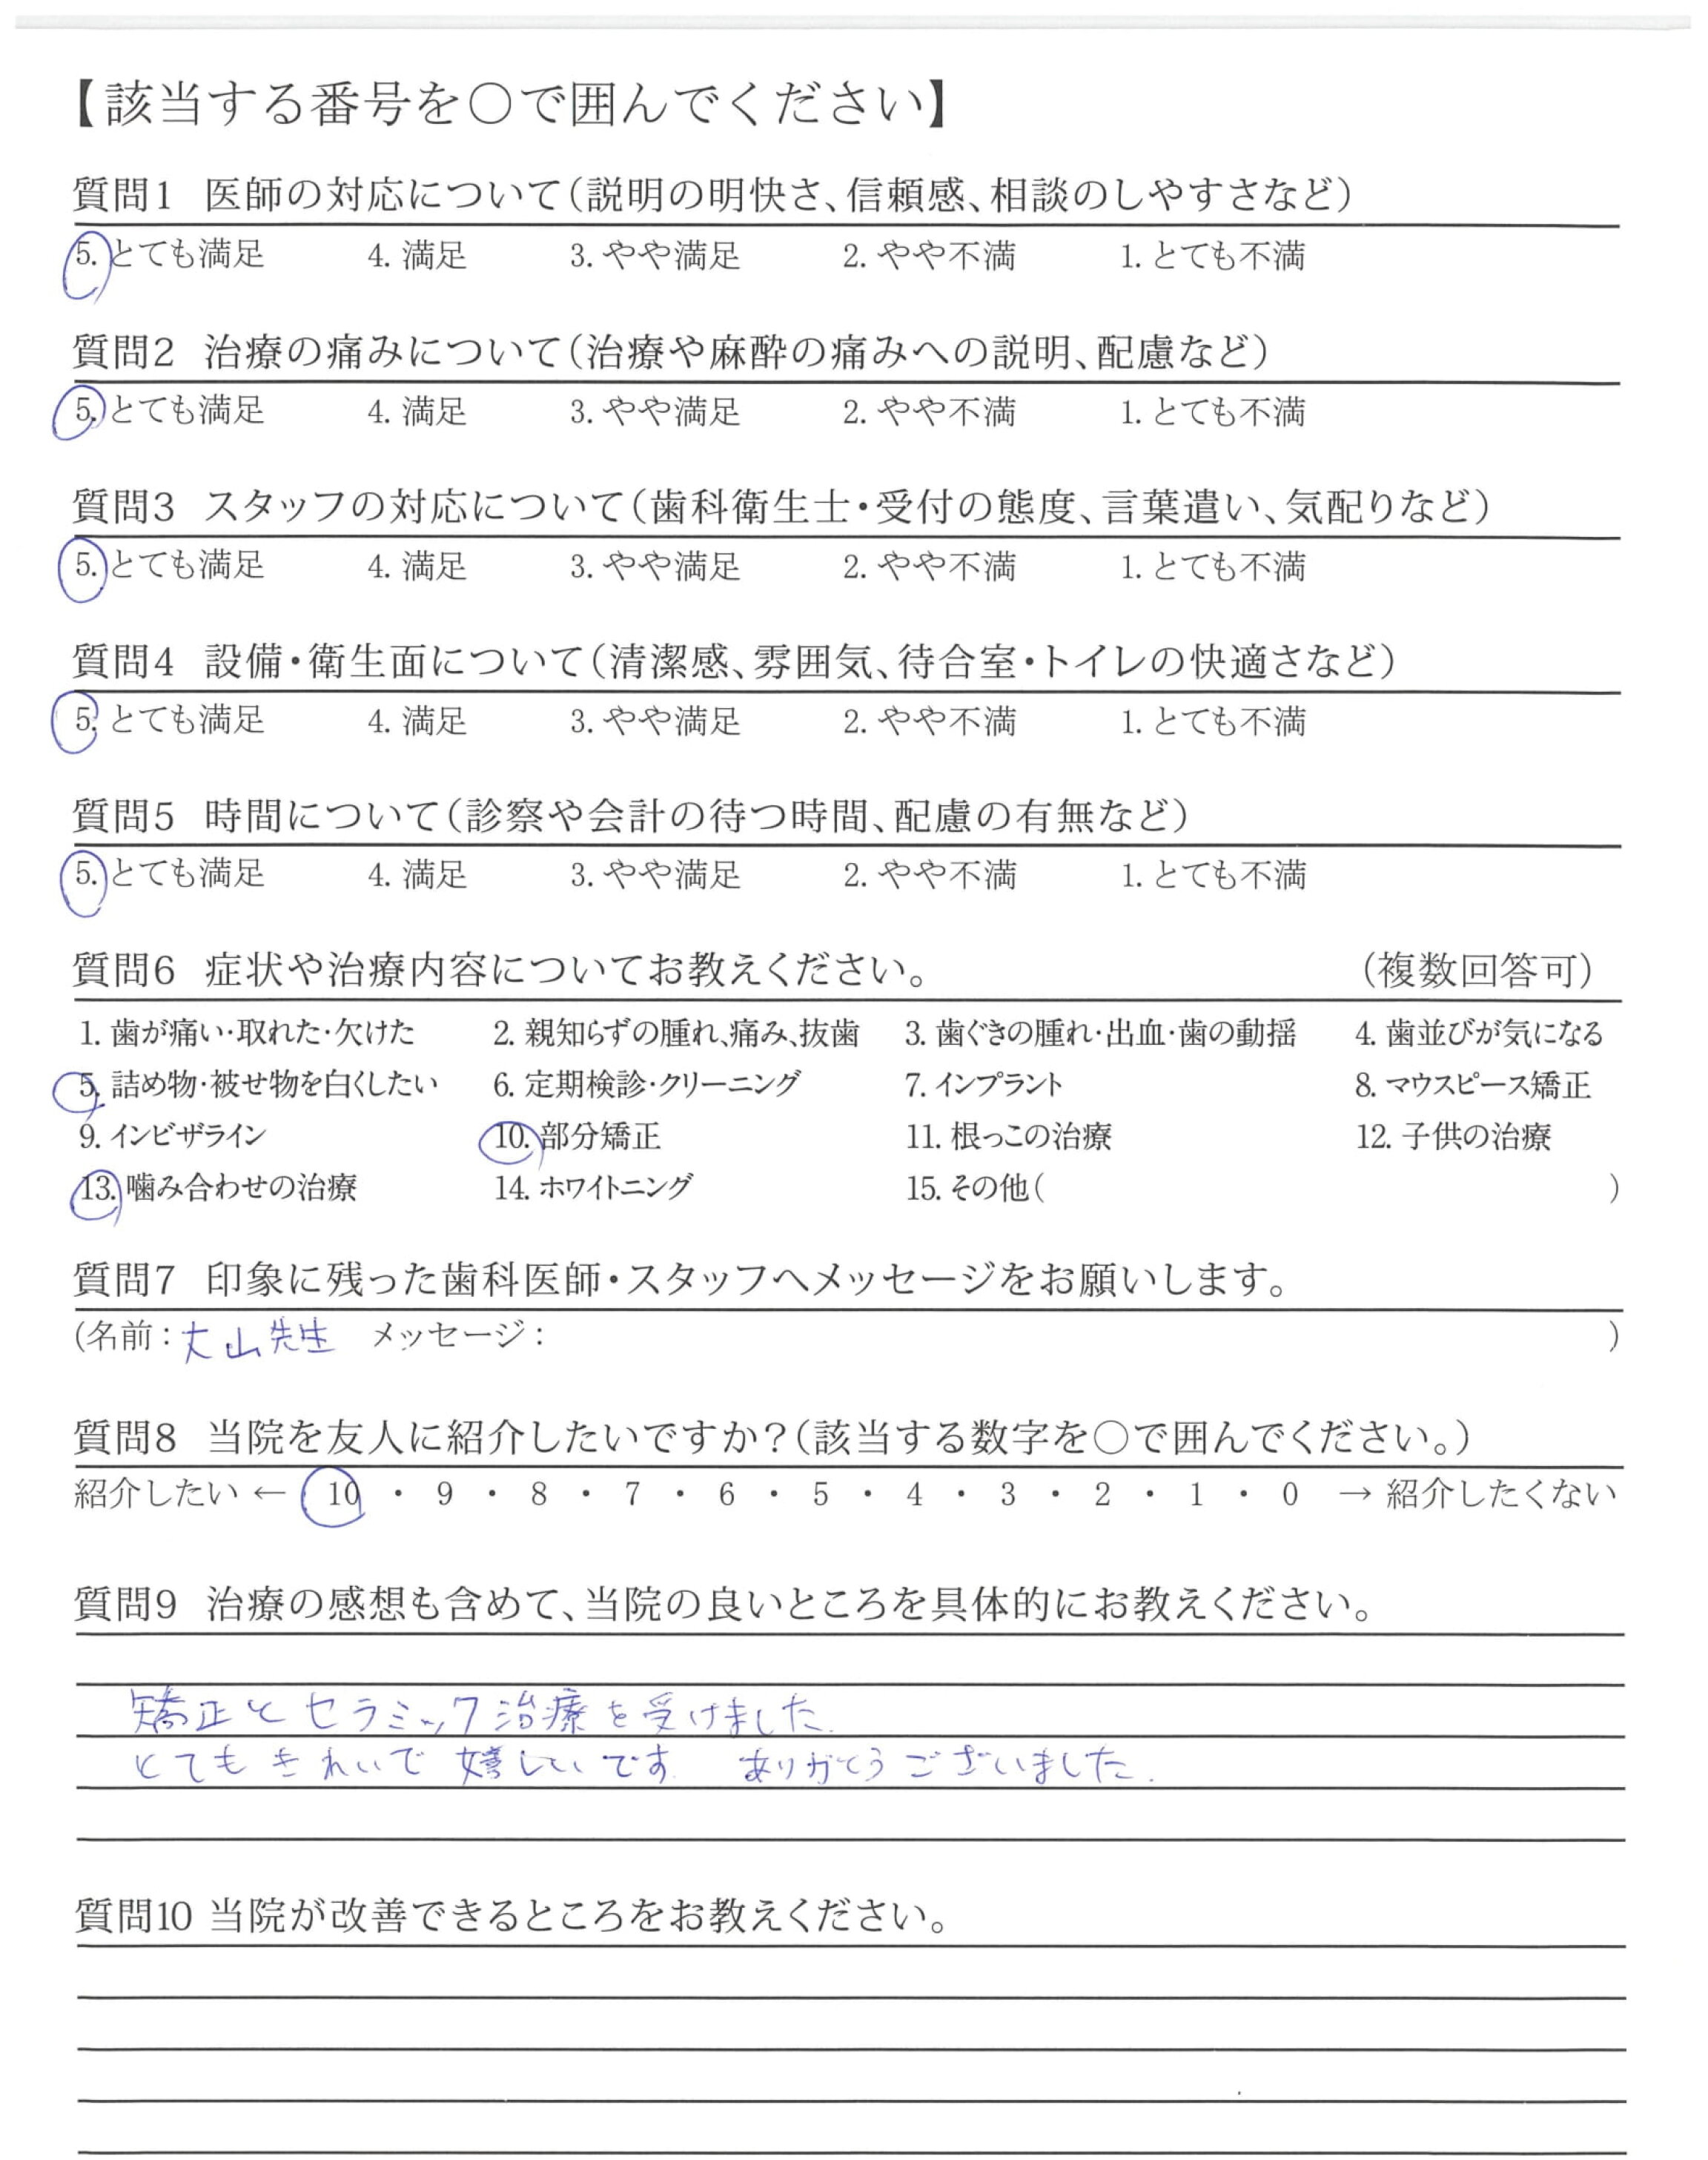 【該当する番号を○で囲んでください】
質問1 医師の対応について(説明の明快さ、信頼感、相談のしやすさなど)
5. とても満足 4. 満足 3. やや満足 2. やや不満 1. とても不満
質問2 治療の痛みについて(治療や麻酔の痛みへの説明、配慮など)
5. とても満足 4. 満足 3. やや満足 2. やや不満 1. とても不満
質問3 スタッフの対応について(歯科衛生士・受付の態度、言葉遣い、気配りなど)
5. とても満足 4. 満足 3. やや満足 2. やや不満 1. とても不満
質問4 設備・衛生面について(清潔感、雰囲気、待合室・トイレの快適さなど)
5. とても満足 4. 満足 3. やや満足 2. やや不満 1. とても不満
質問5 時間について(診察や会計の待つ時間、配慮の有無など)
5. とても満足 4. 満足 3. やや満足 2. やや不満 1. とても不満
質問6 症状や治療内容についてお教えください。 (複数回答可)
1. 歯が痛い・取れた・欠けた 2. 親知らずの腫れ、痛み、抜歯 3. 歯ぐきの腫れ・出血・歯の動揺 4. 歯並びが気になる
5. 詰め物・被せ物を白くしたい 6. 定期検診・クリーニング 7. インプラント 8. マウスピース矯正
9. インビザライン 10. 部分矯正 11. 根っこの治療 12. 子供の治療
13. 噛み合わせの治療 14. ホワイトニング 15. その他( )
質問7 印象に残った歯科医師・スタッフへメッセージをお願いします。
(名前:丈山先生 メッセージ: )
質問8 当院を友人に紹介したいですか?(該当する数字を○で囲んでください。)
紹介したい ← 10 ・ 9 ・ 8 ・ 7 ・ 6 ・ 5 ・ 4 ・ 3 ・ 2 ・ 1 ・ 0 → 紹介したくない
質問9 治療の感想も含めて、当院の良いところを具体的にお教えください。
矯正とセラミック治療を受けました.
とてもきれいで嬉しいです. ありがとうございました.
質問10 当院が改善できるところをお教えください。